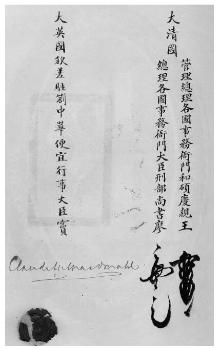 大清國
管理總理各國事務衙門和碩慶親王
總理各國事務衙門大臣刑部尚書廖
大英國欽差駐劄中華便宜行事大臣竇
Claude M. MacDonald